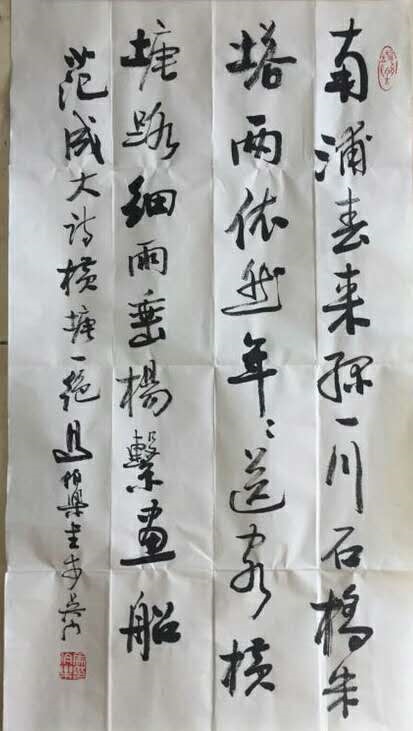 南浦春来绿一川石桥朱
塔两依然年〻送客横
塘路细雨垂杨繫画船
范成大诗横塘一绝